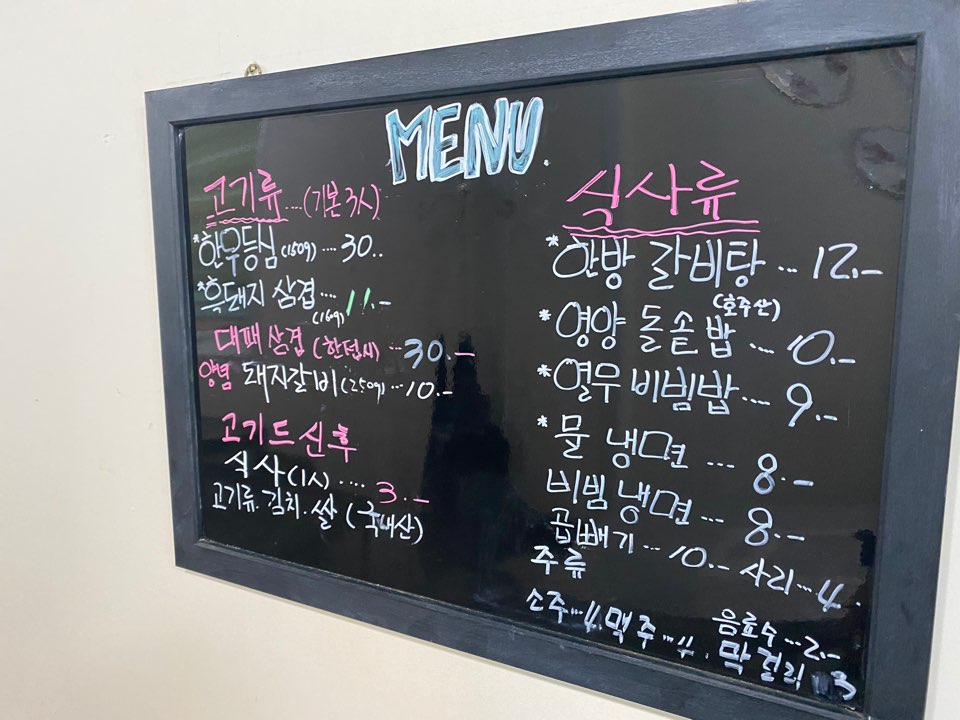 MENU.
고기류...(기본 3人)
*한우등심(150g)...30..
*흑돼지 삼겹....11.-
(160g)
대패삼겹(한접시)...30.-
양념 돼지갈비(250g)...10.-
고기드신후
식사(1人)....3.-
고기류.김치.쌀(국내산)
식사류
*한방 갈비탕...12.-
(호주산)
*영양 돌솥밥...10.-
*열무 비빔밥...9.-
*물 냉면...8.-
비빔냉면...8.-
곱빼기...10.- 사리...4.
주류
음료수...2.-
소주...4.맥주...4.막걸리 3